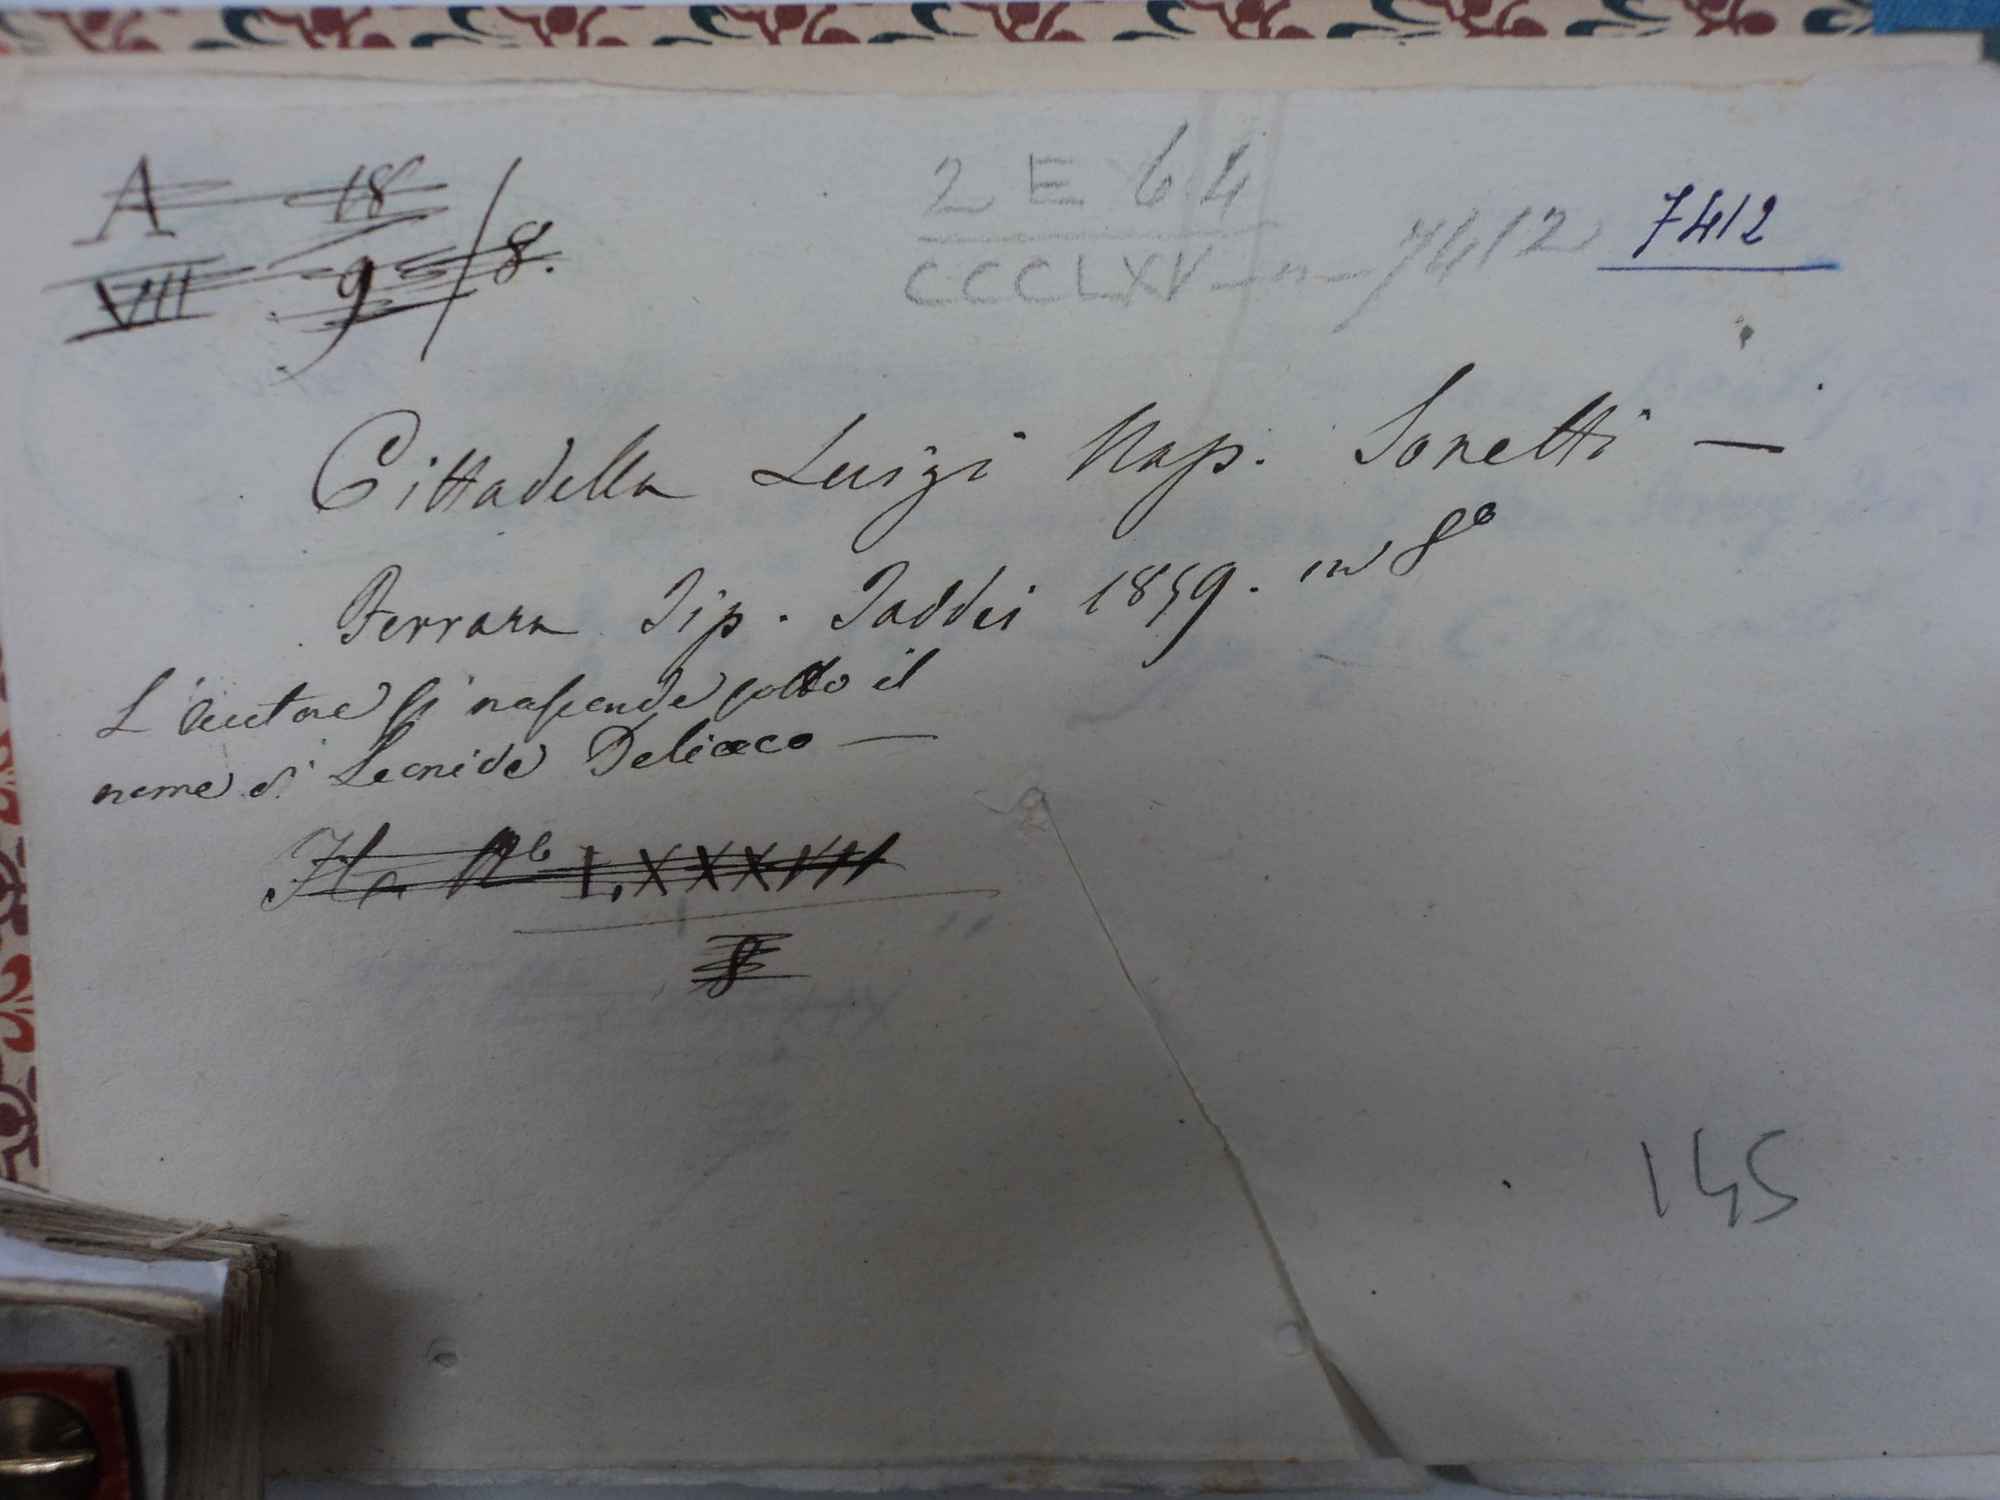 A 18
VII 9 / 8.
2 E 64
CCCLXV — n — 7412
7412
Cittadella Luigi Nap. Sonetti —
Ferrara Tip. Taddei 1859. in 8º
L'Autore si nasconde sotto il
nome di Leonide Deliaco —
LXXXVII
8
145